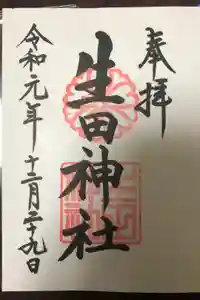 奉拝
生田神社
令和元年十二月二十九日